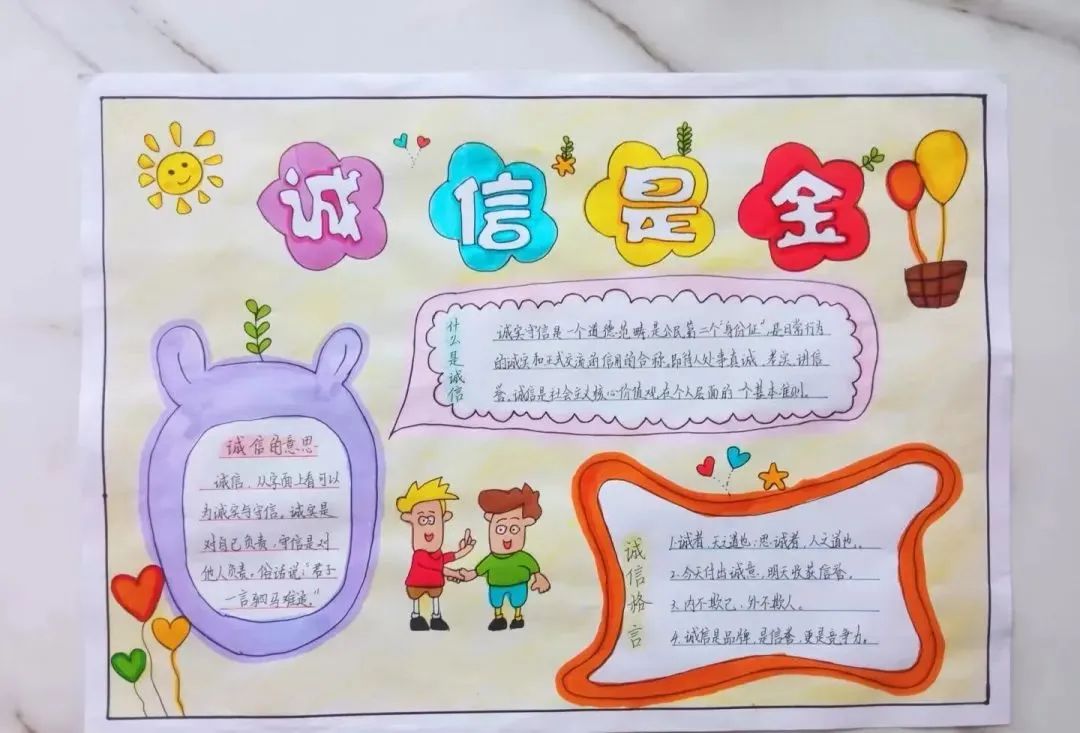 诚信是金
什么是诚信
诚实守信是一个道德范畴,是公民第二个“身份证”,是日常行为
的诚实和正式交流的信用的合称。即待人处事真诚、老实、讲信
誉。诚信是社会主义核心价值观在个人层面的一个基本准则。
诚信的意思
诚信,从字面上看可以
为诚实与守信。诚实是
对自己负责,守信是对
他人负责。俗话说:“君子
一言驷马难追。”
诚信格言
1.诚者,天之道也;思诚者,人之道也。
2.今天付出诚意,明天收获信誉。
3.内不欺己,外不欺人。
4.诚信是品牌,是信誉,更是竞争力。